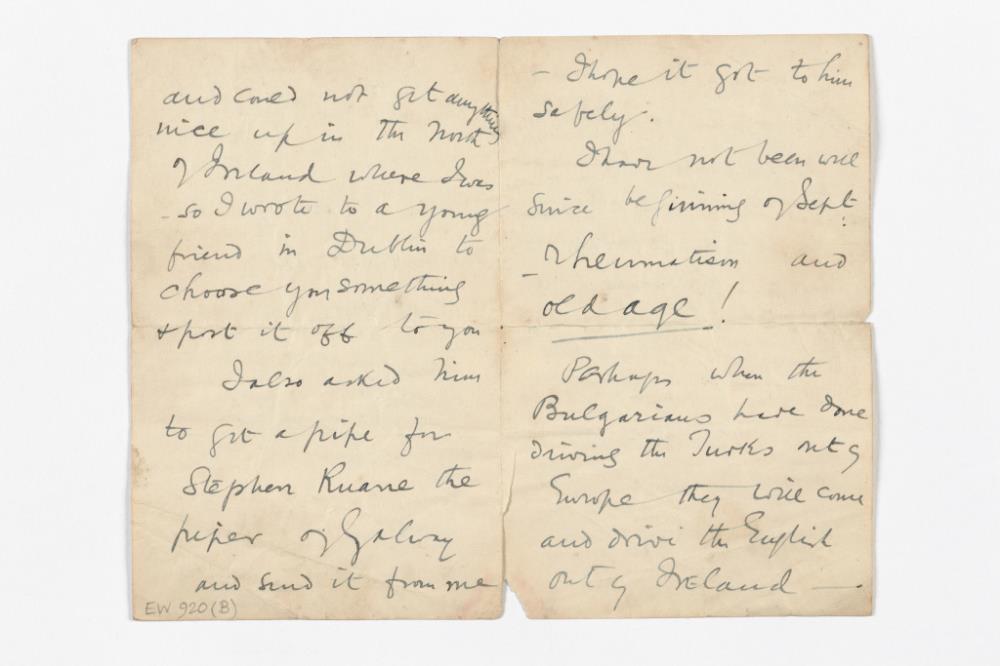 and could not get anything
nice up in the North
of Ireland where I was
- so I wrote to a young
friend in Dublin to
choose you something
& post it off to you
I also asked him
to get a pipe for
Stephen Ruane the
piper of Galway
and send it from me
EW 920 (B)
- I hope it got to him
safely.
I have not been well
since beginning of Sept.
- rheumatism and
old age!
Perhaps when the
Bulgarians have done
driving the Turks out of
Europe they will come
and drive the English
out of Ireland —